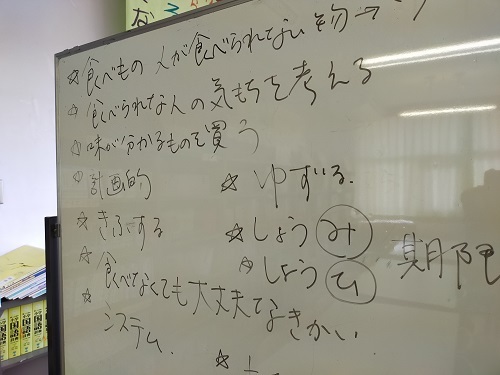 ☆食べもの 人が食べられてない物→
☆食べられな人の気もちを考える
☆味が分かるものを買う
☆計画的
☆ゆずる.
☆きふする
☆しょうみ
☆しょうひ
期限
☆食べなくても大丈夫なきかい
☆システム.
国語
国語
国語